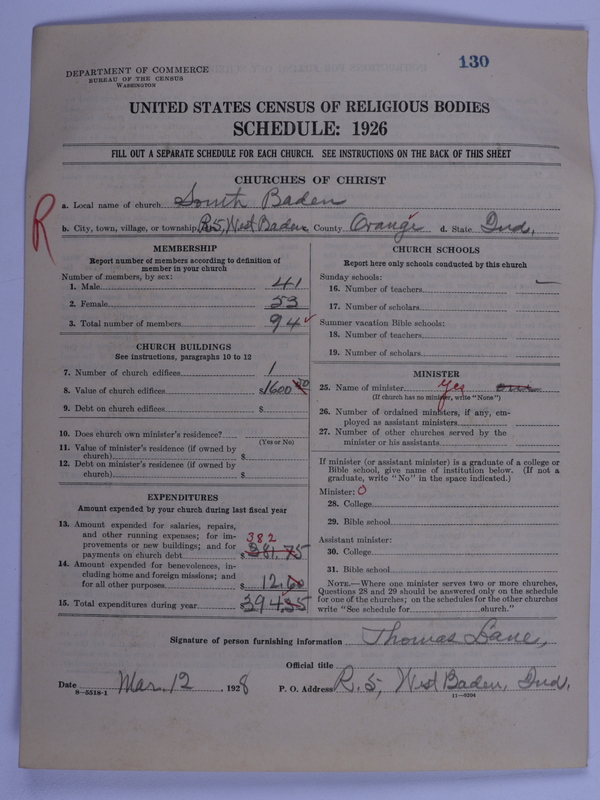 130
DEPARTMENT OF COMMERCE
BUREAU OF THE CENSUS
WASHINGTON
UNITED STATES CENSUS OF RELIGIOUS BODIES
SCHEDULE: 1926
FILL OUT A SEPARATE SCHEDULE FOR EACH CHURCH. SEE INSTRUCTIONS ON THE BACK OF THIS SHEET
CHURCHES OF CHRIST
R
a. Local name of church South Baden
b. City, town, village, or township R5, West Baden County Orange d. State Ind.
MEMBERSHIP
Report number of members according to definition of
member in your church
Number of members, by sex:
1. Male 41
2. Female 53
3. Total number of members 94
CHURCH BUILDINGS
See instructions, paragraphs 10 to 12
7. Number of church edifices 1
8. Value of church edifices $1600 00
9. Debt on church edifices $
10. Does church own minister's residence?
(Yes or No)
11. Value of minister's residence (if owned by
church) $
12. Debt on minister's residence (if owned by
church) $
EXPENDITURES
Amount expended by your church during last fiscal year
13. Amount expended for salaries, repairs,
and other running expenses; for im-
provements or new buildings; and for
382
payments on church debt $381.75
14. Amount expended for benevolences, in-
cluding home and foreign missions; and
for all other purposes $12.60
15. Total expenditures during year $394.35
CHURCH SCHOOLS
Report here only schools conducted by this church
Sunday schools:
16. Number of teachers —
17. Number of scholars
Summer vacation Bible schools:
18. Number of teachers
19. Number of scholars
MINISTER
25. Name of minister yes
(If church has no minister, write "None")
26. Number of ordained ministers, if any, em-
ployed as assistant ministers
27. Number of other churches served by the
minister or his assistants
If minister (or assistant minister) is a graduate of a college or
Bible school, give name of institution below. (If not a
graduate, write "No" in the space indicated.)
Minister: 0
28. College
29. Bible school
Assistant minister:
30. College
31. Bible school
NOTE.—Where one minister serves two or more churches,
Questions 28 and 29 should be answered only on the schedule
for one of the churches; on the schedules for the other churches
write "See schedule for church."
Signature of person furnishing information Thomas Lane,
Official title
Date Mar. 12, 1928 P. O. Address R. 5, West Baden, Ind.
8-5518-1 11-9204